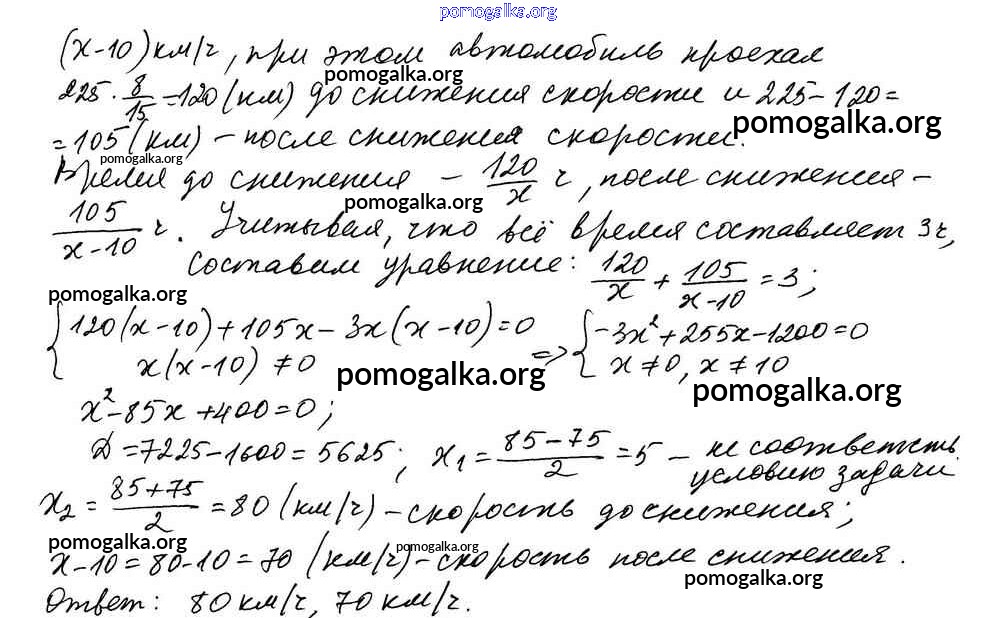 pomogalka.org
(x-10) км/ч, при этом автомобиль проехал
pomogalka.org
225 · 8/15 = 120 (км) до снижения скорости и 225-120=
pomogalka.org
= 105 (км) - после снижения скорости.
pomogalka.org
Время до снижения - 120/x ч, после снижения -
pomogalka.org
105/(x-10) ч. Учитывая, что всё время составляет 3ч,
составим уравнение: 120/x + 105/(x-10) = 3;
pomogalka.org
{120(x-10)+105x-3x(x-10)=0 => {-3x²+255x-1200=0
x(x-10) ≠ 0 x≠0, x≠10
pomogalka.org
pomogalka.org
x²-85x+400=0;
D=7225-1600=5625; x₁ = (85-75)/2 = 5 - не соответств.
условию задачи
x₂ = (85+75)/2 = 80 (км/ч) - скорость до снижения;
pomogalka.org
pomogalka.org
x-10=80-10=70 (км/ч) - скорость после снижения.
pomogalka.org
Ответ: 80 км/ч, 70 км/ч.